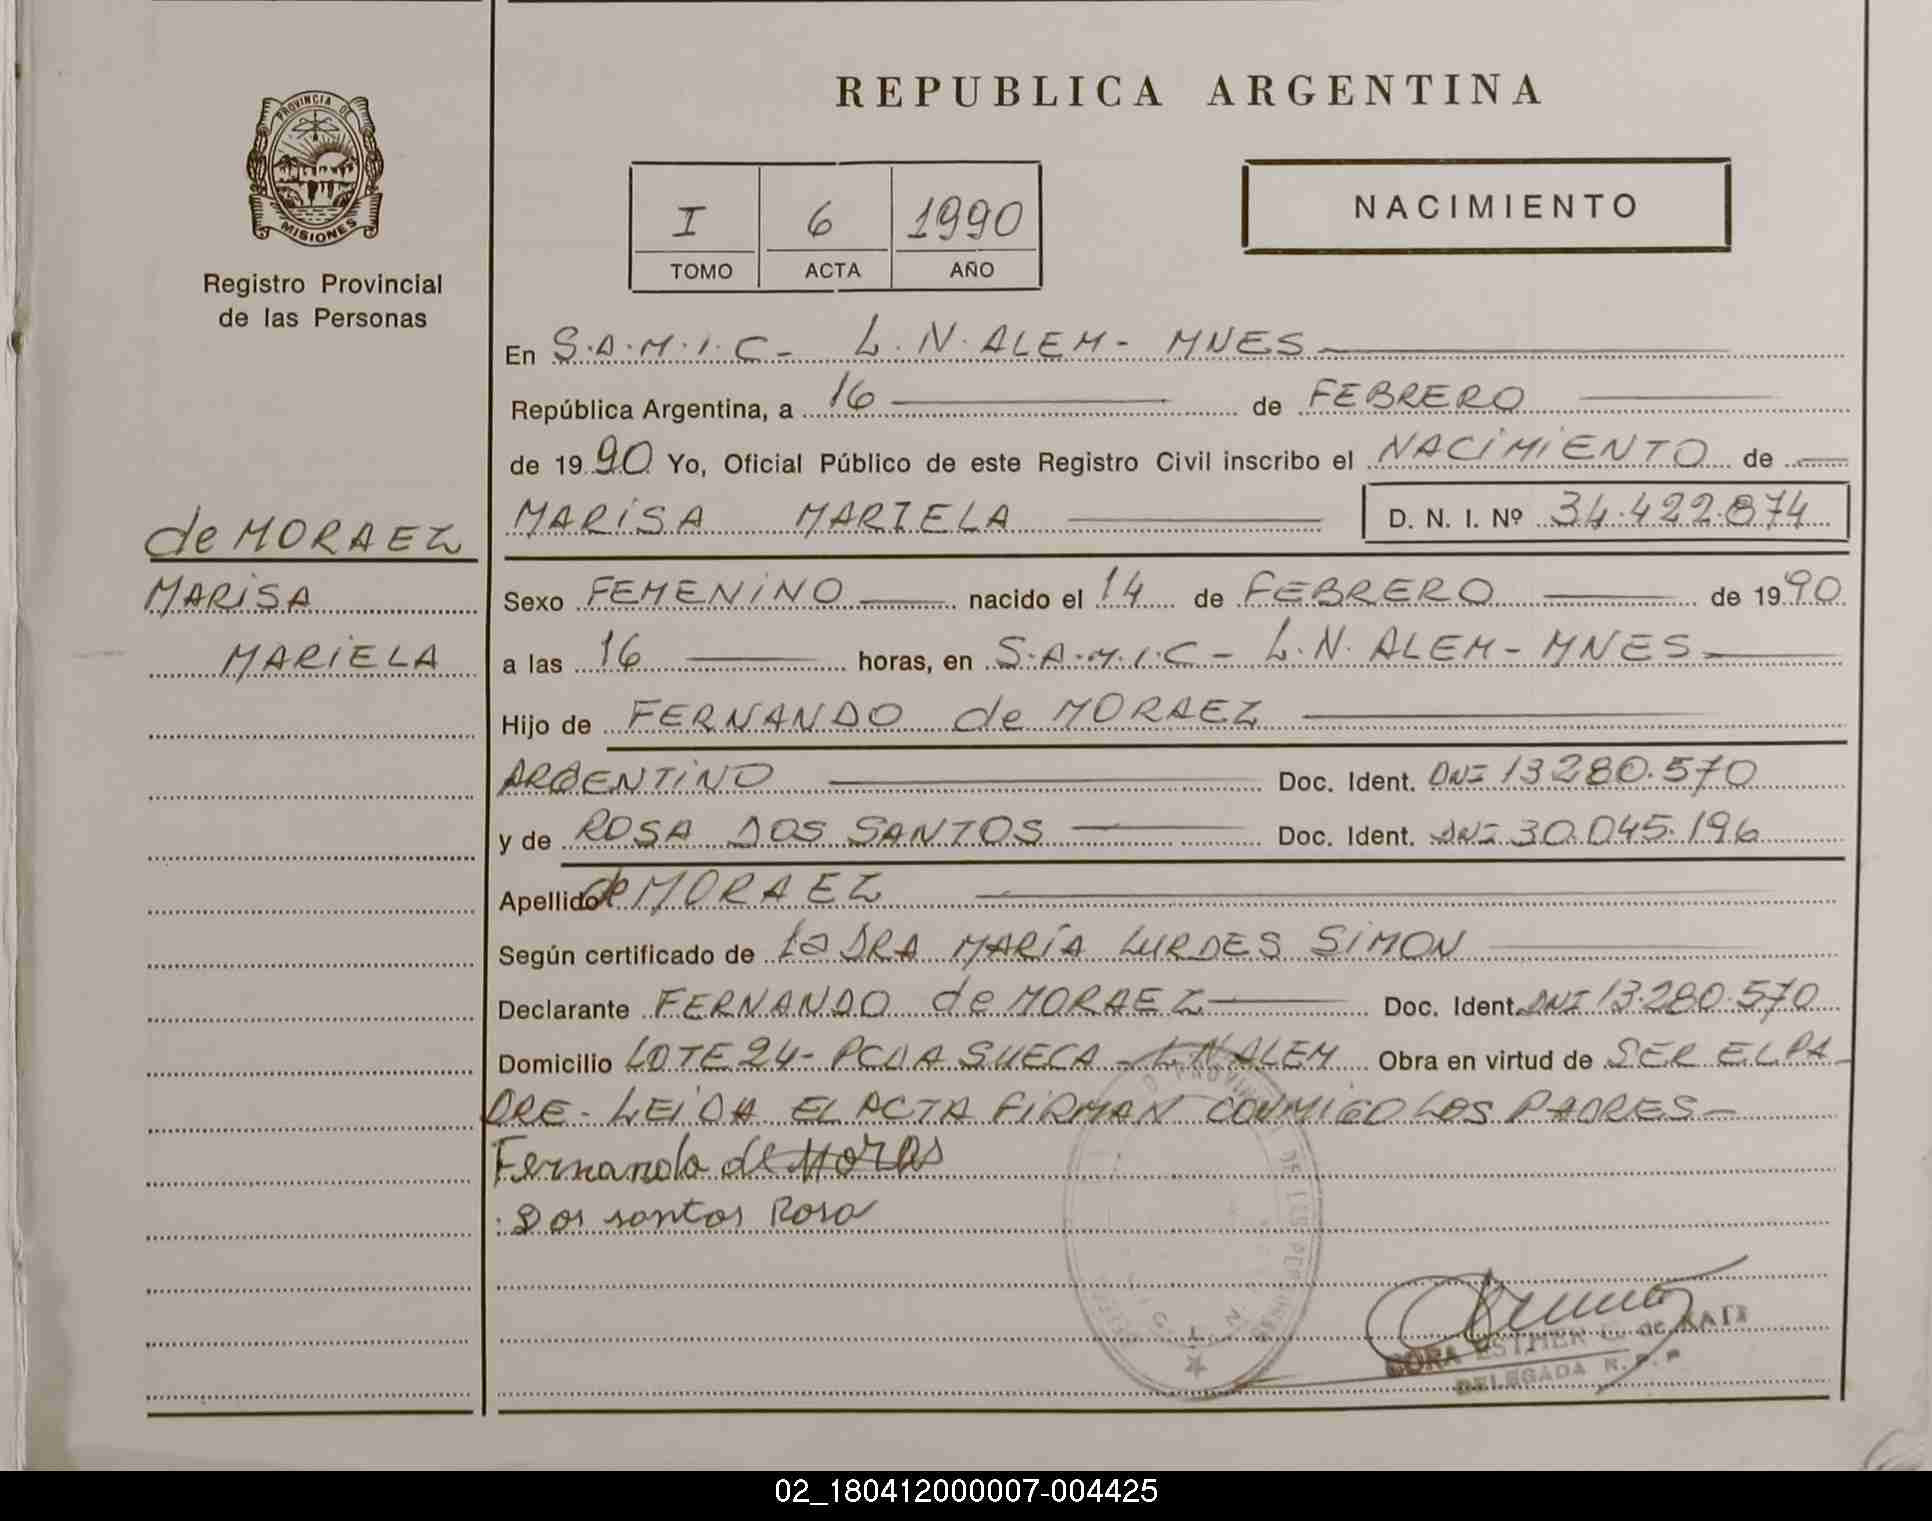 REPUBLICA ARGENTINA
PROVINCIA DE
MISIONES
Registro Provincial
de las Personas
I 6 1990
TOMO ACTA AÑO
NACIMIENTO
En S.A.M.I.C - L.N.ALEM - MNES
República Argentina, a 16 de FEBRERO
de 1990 Yo, Oficial Público de este Registro Civil inscribo el NACIMIENTO de
MARISA MARIELA D. N. I. Nº 34.422.874
de MORAEZ
MARISA
MARIELA
Sexo FEMENINO nacido el 14 de FEBRERO de 1990
a las 16 horas, en S.A.M.I.C - L.N. ALEM - MNES
Hijo de FERNANDO de MORAEZ
ARGENTINO Doc. Ident. DNI 13280.570
y de ROSA DOS SANTOS Doc. Ident. DNI 30.045.196
Apellido de MORAEZ
Según certificado de la DRA MARÍA LURDES SIMON
Declarante FERNANDO de MORAEZ Doc. Ident. DNI 13.280.570
Domicilio LOTE 24 - PCDA SUECA - L.N.ALEM Obra en virtud de SER EL PA-
DRE - LEIDA EL ACTA FIRMAN CONMIGO LOS PADRES -
Fernando de Moras
Dos santos Rosa
ESTHER
DELEGADA R. P. P
02_180412000007-004425